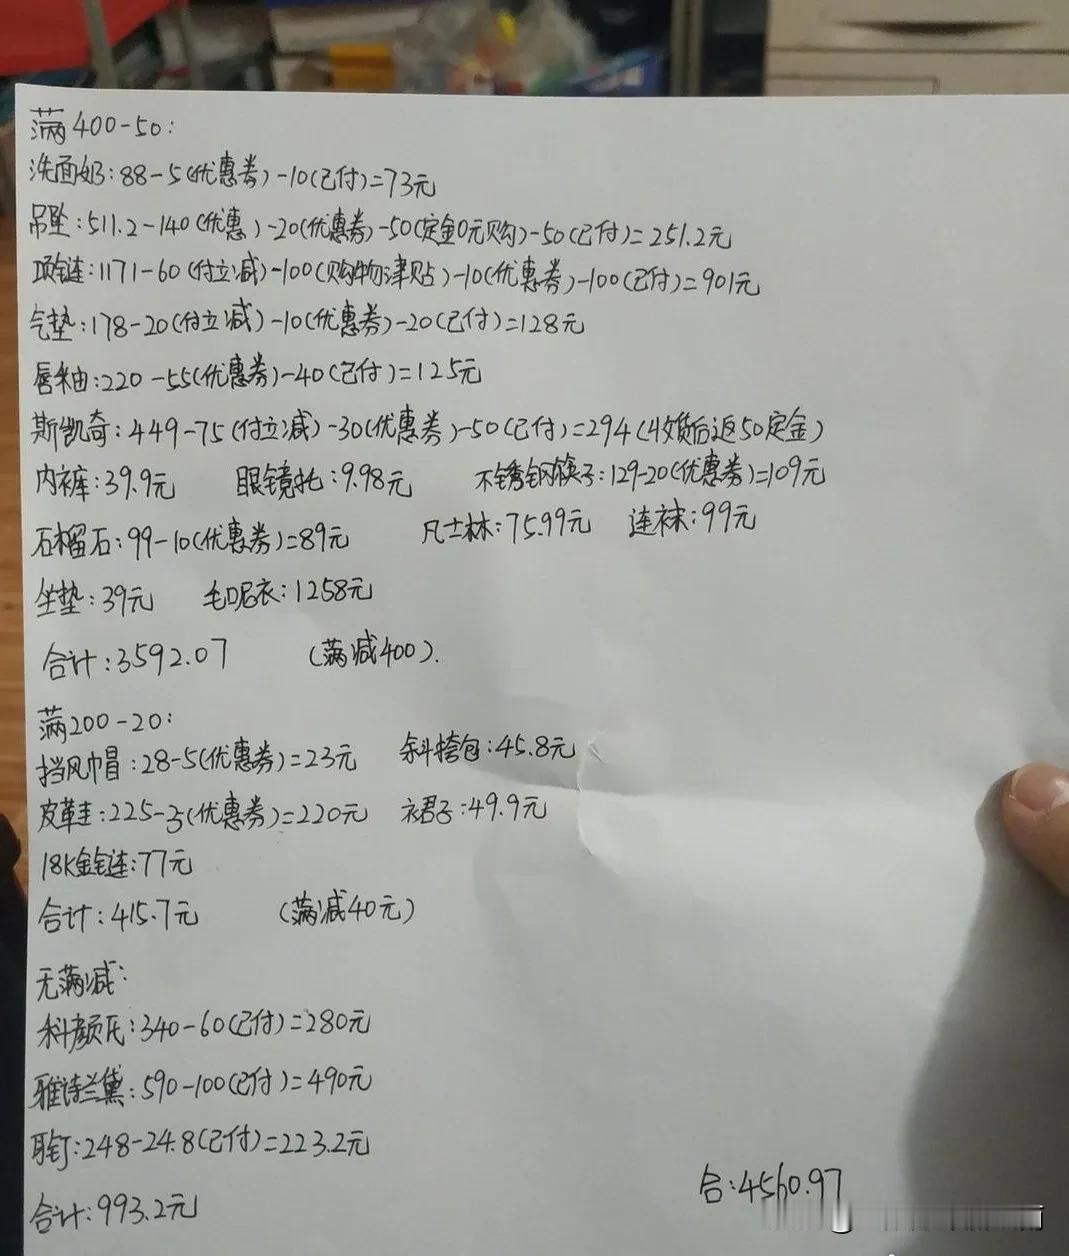 满400-50:
洗面奶:88-5(优惠券)-10(已付)=73元
吊坠:511.2-140(优惠)-20(优惠券)-50(定金0元购)-50(已付)=251.2元
项链:1171-60(付立减)-100(购物津贴)-10(优惠券)-100(已付)=901元
气垫:178-20(付立减)-10(优惠券)-20(已付)=128元
唇釉:220-55(优惠券)-40(已付)=125元
斯凯奇:449-75(付立减)-30(优惠券)-50(已付)=294(收货后返50定金)
内裤:39.9元 眼镜托:9.98元 不锈钢筷子:129-20(优惠券)=109元
石榴石:99-10(优惠券)=89元 凡士林:75.99元 连袜:99元
坐垫:39元 毛呢衣:1258元
合计:3592.07 (满减400).
满200-20:
挡风帽:28-5(优惠券)=23元 斜挎包:45.8元
皮鞋:225-5(优惠券)=220元 裙子:49.9元
18K金链:77元
合计:415.7元 (满减40元)
无满减:
科颜氏:340-60(已付)=280元
雅诗兰黛:590-100(已付)=490元
耳钉:248-24.8(已付)=223.2元
合计:993.2元
合:4560.97